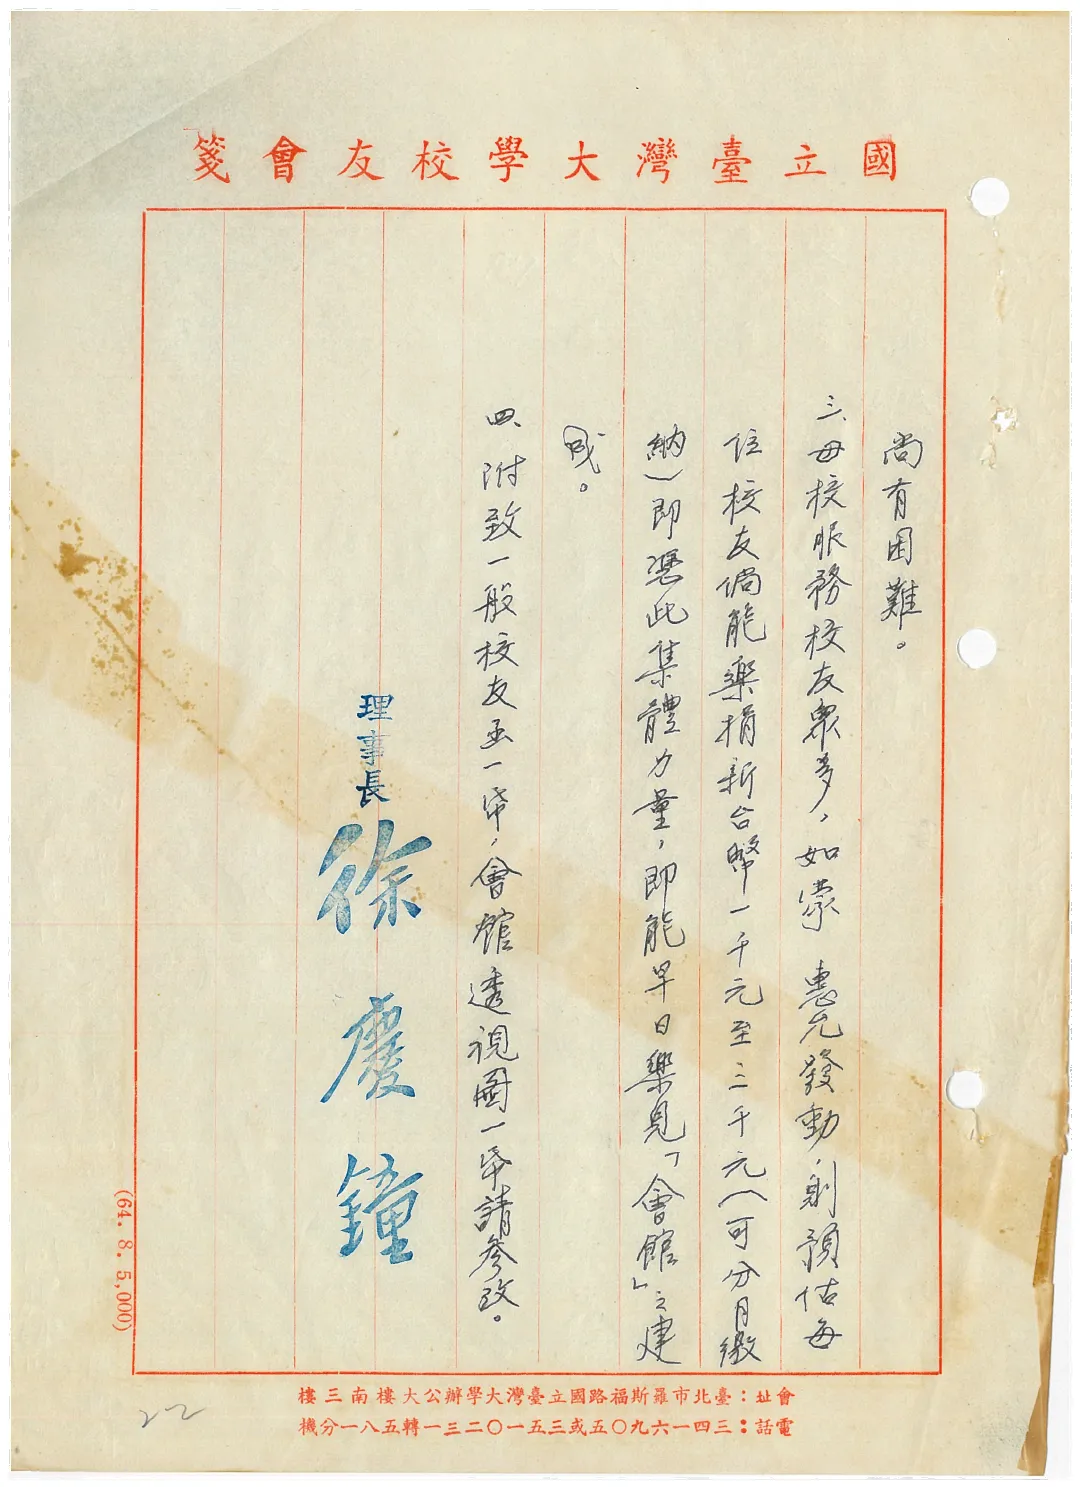 國立臺灣大學校友會箋
尚有困難。
三、母校服務校友衆多，如蒙 惠允發動，則預估每
位校友倘能樂捐新台幣一千元至三千元（可分月繳
納）即憑此集體力量，即能早日樂見「會館」之建
成。
四、附致一般校友函一帋，會館透視圖一帋請參攷。
理事長 徐慶鐘
(64. 8. 5,000)
會址：臺北市羅斯福路國立臺灣大學辦公大樓南三樓
電話：三四一六九〇五或三五一〇二三一轉五八一分機
22